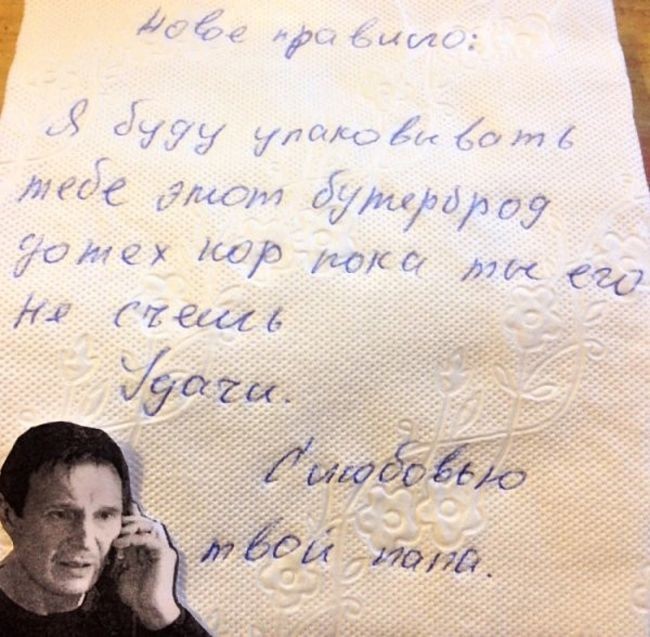 Новое правило:
Я буду упаковывать
тебе этот бутерброд
дотех пор пока ты его
не счешь
Удачи.
С любовью
твой папа.